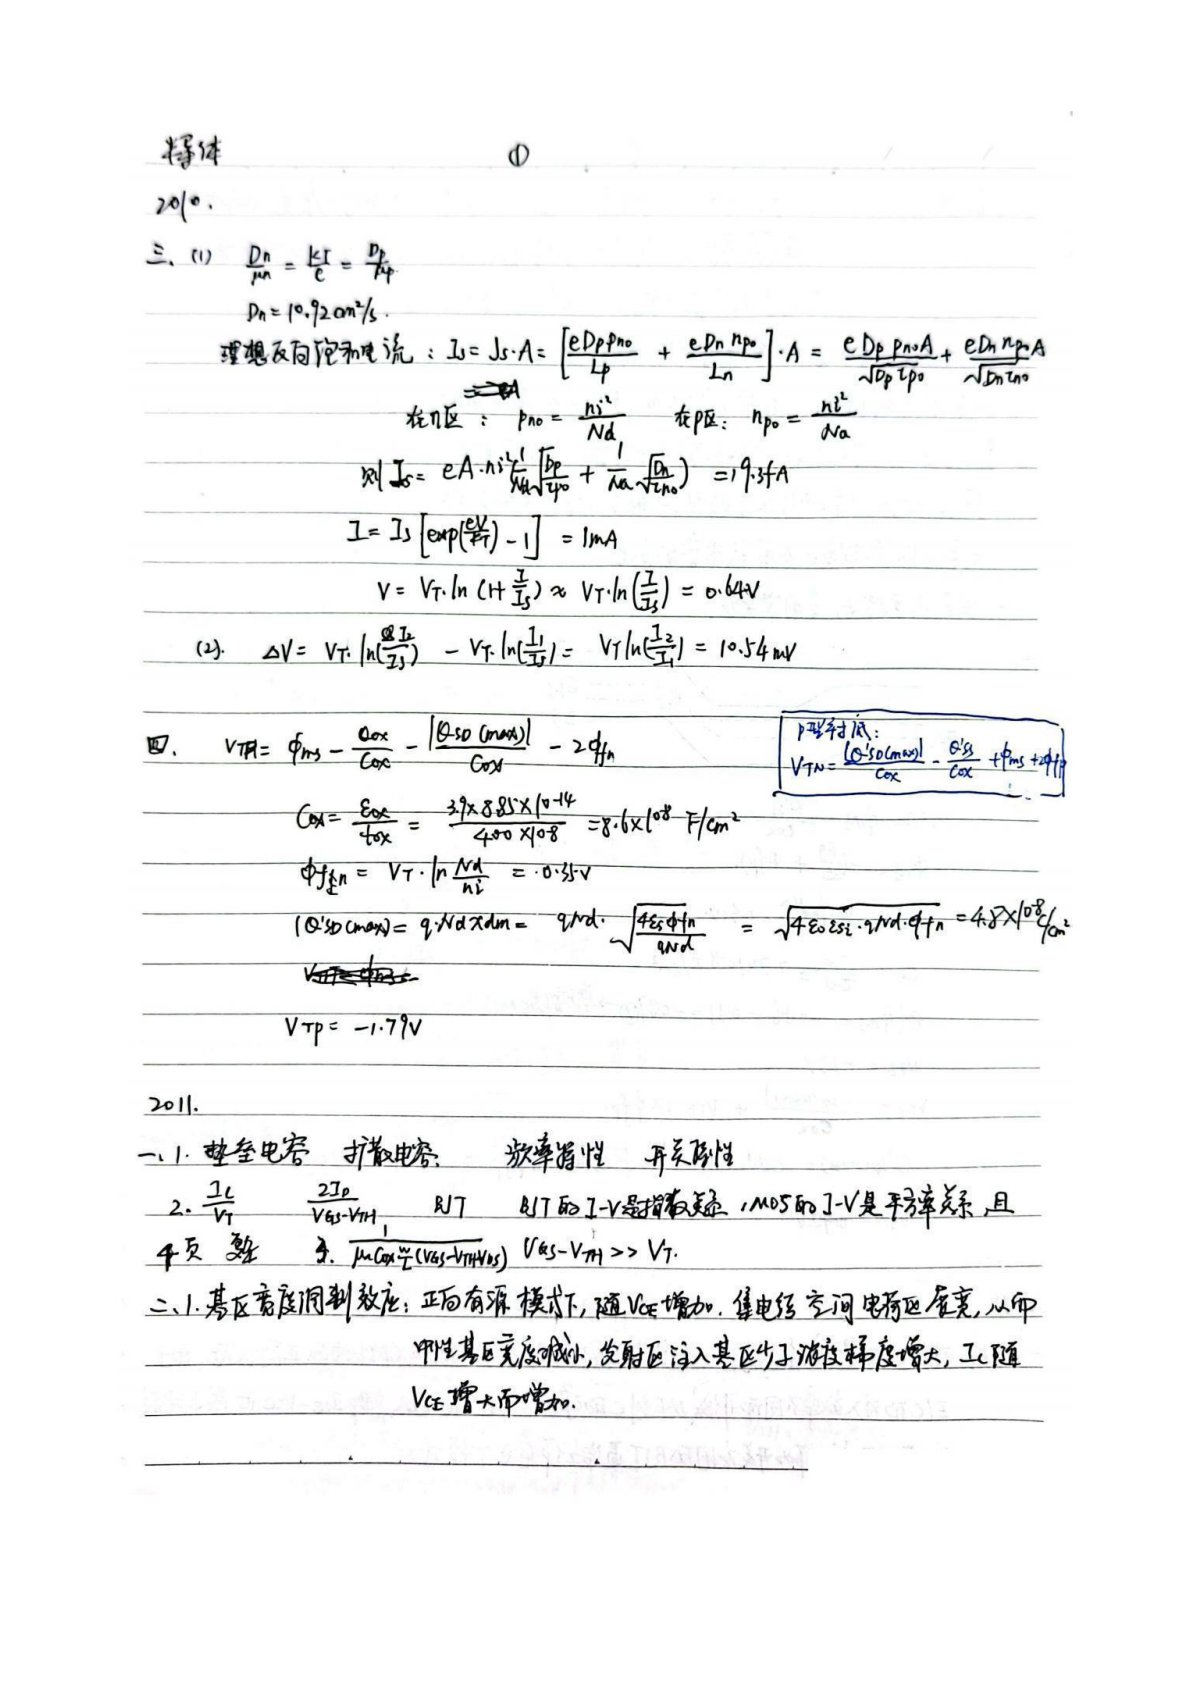 半导体 ①
2010.
三、(1) Dn/μn = kT/e = Dp/μp
Dn = 10.92cm²/s.
理想反向饱和电流：Is = Js·A = [eDp pno/Lp + eDn npo/Ln]·A = eDp pno A/√(Dp τpo) + eDn npo A/√(Dn τno)
在n区： pno = ni²/Nd 在p区： npo = ni²/Na
则 Is = eA·ni²(1/Nd √(Dp/τpo) + 1/Na √(Dn/τno)) = 19.3fA
I = Is[exp(eV/kT) - 1] = 1mA
V = VT·ln(1+I/Is) ≈ VT·ln(I/Is) = 0.64V
(2). ΔV = VT·ln(I2/Is) - VT·ln(I1/Is) = VT ln(I2/I1) = 10.54mV
四、 VTH = ϕms - Qox/Cox - |Q'SD(max)|/Cox - 2ϕfn
P型衬底：
VTN = |Q'SD(max)|/Cox - Q'ss/Cox + ϕms + 2ϕfp
Cox = εox/tox = 3.9×8.85×10-14/400×10-8 = 8.6×10-8 F/cm²
ϕfn = VT·ln Nd/ni = 0.35V
|Q'SD(max)| = q·Nd xdm = qNd·√(4εsϕfn/qNd) = √(4ε0εsi·qNd·ϕfn) = 4.8×10-8 C/cm²
VTP = -1.79V
2011.
一、1. 势垒电容 扩散电容 频率特性 开关特性
2. Ic/VT 2ID/VGS-VTH BJT BJT的I-V是指数关系，MOS的I-V是平方率关系，且
1/μnCox W/L(VGS-VTH-VDS) VGS-VTH >> VT.
二、1. 基区宽度调制效应：正向有源模式下，随VCE增加，集电结空间电荷区展宽，从而
中性基区宽度减小，发射区注入基区少子浓度梯度增大，Ic随
VCE增大而增加.